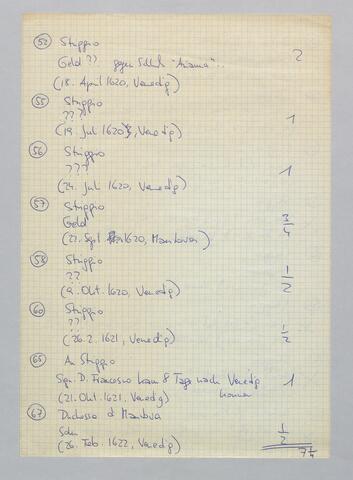 52 Striggio 2
Geld ?? gegen "Arianna"..
(18. April 1620, Venedig)
55 Striggio
??? 1
(19. Jul 1620, Venedig)
56 Striggio
??? 1
(24. Jul 1620, Venedig)
57 Striggio
Geld 3/4
(27. Sept 1620, Mantova)
58 Striggio
?? 1/2
(9. Okt. 1620, Venedig)
60 Striggio
?? 1/2
(26. 2. 1621, Venedig)
65 An Striggio
Sgr. D. Francesco kam 8 Tage nach Venedig 1
(21. Okt. 1621, Venedig)
67 Duchessa d Mantova
1/2
(26. Feb. 1622, Venedig)
7 1/4